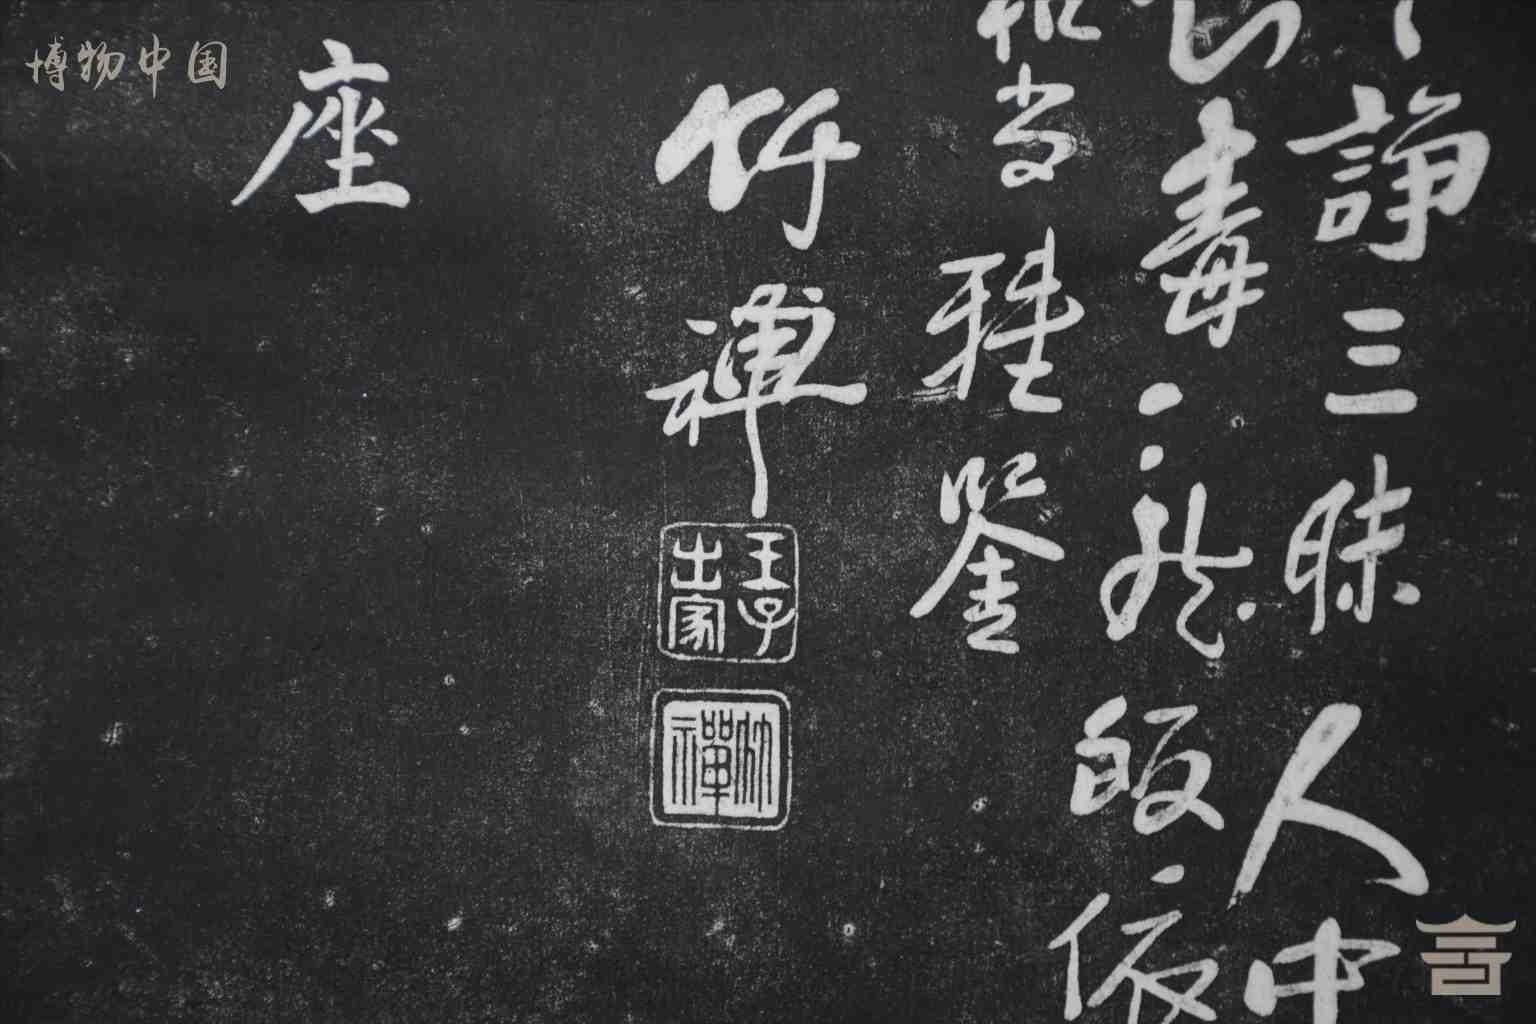 博物中国
諍三昧人中
毒龍皈依
雅鑒
竹禪
王子出家
竹禪
座